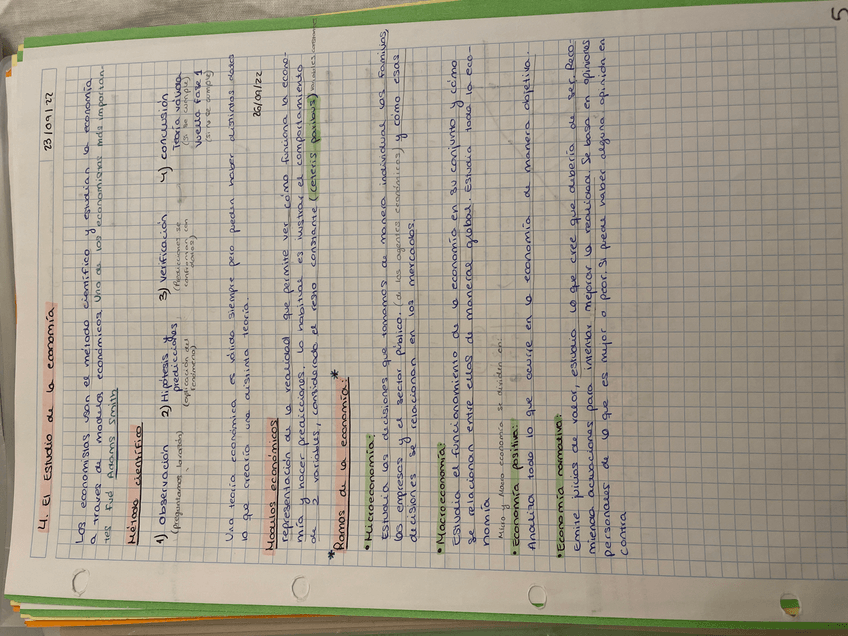 23/09/22
4. El Estudio de la economía
Los economistas usan el método científico y estudian la economía
a traves de modelos económicos. Uno de los economistas más importan-
tes fue Adams Smith
Método científico
1) Observación 2) Hipótesis y predicciones 3) Verificación 4) conclusión
(preguntarnos, la razón) (aplicación del fenómeno) (Predicciones se confrontan con datos) Teoría válida (si se cumple)
Vuelta fase 1
(si no se cumple)
Una teoría económica es válida siempre pero pueden haber distintos datos
lo que crearía una distinta teoría.
26/09/22
Modulos económicos
representación de la realidad que permite ver cómo funciona la econo-
mía y hacer predicciones. Lo habitual es mostrar el comportamiento
de 2 variables, considerado el resto constante (ceteris paribus)
*Ramas de la economía:*
• Microeconomía:
Estudia las decisiones que tomamos de manera individual las familias,
las empresas y el sector público. (de los agentes económicos) y cómo esas
decisiones se relacionan en los mercados.
• Macroeconomía:
Estudia el funcionamiento de la economía en su conjunto y cómo
se relacionan entre ellos de manera global. Estudia toda la eco-
nomía
Micro y Macro economía se dividen en:
• Economía positiva:
Analiza todo lo que ocurre en la economía de manera objetiva.
• Economía normativa:
Emite juicios de valor, estudia lo que cree que debería de ser. Reco-
mienda actuaciones para intentar mejorar la realidad. Se basa en opiniones
personales de lo que es mejor o peor. Si puede haber alguna opinión en
contra
5